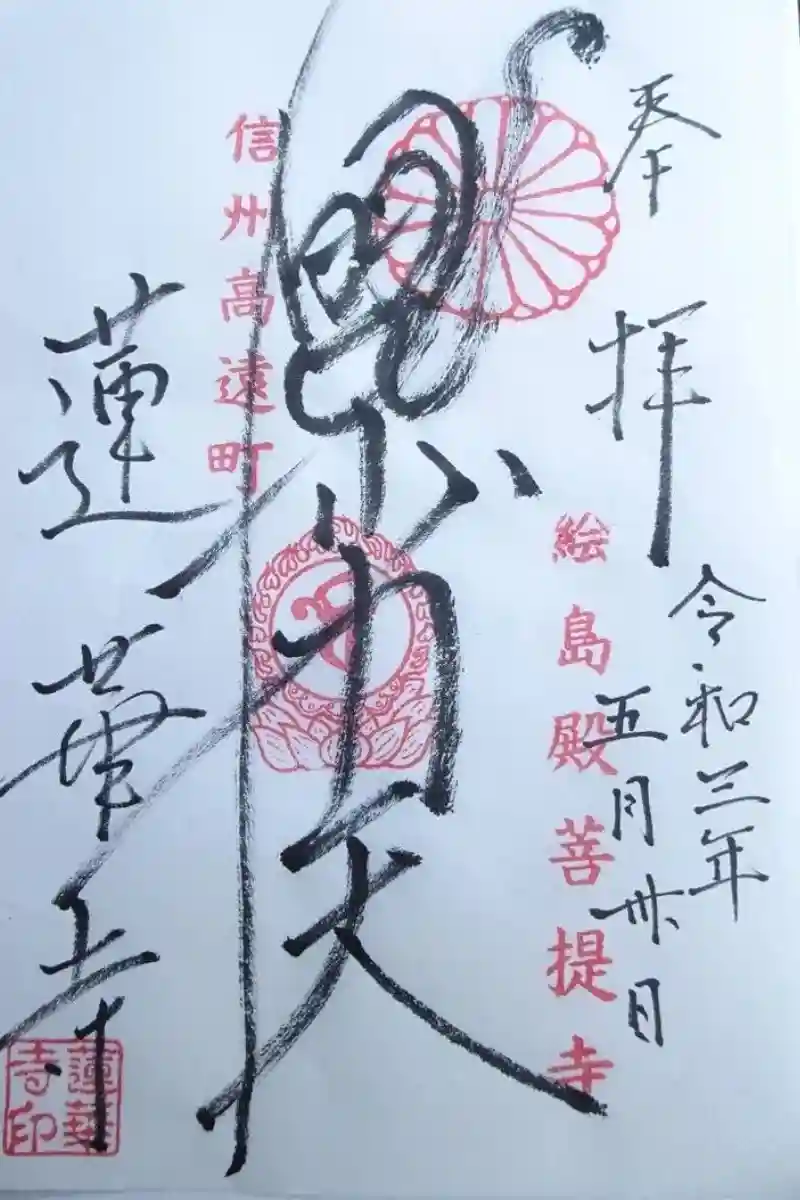 奉拝
令和三年
五月卅日
絵島殿菩提寺
天
信州高遠町
蓮華寺
蓮華寺印